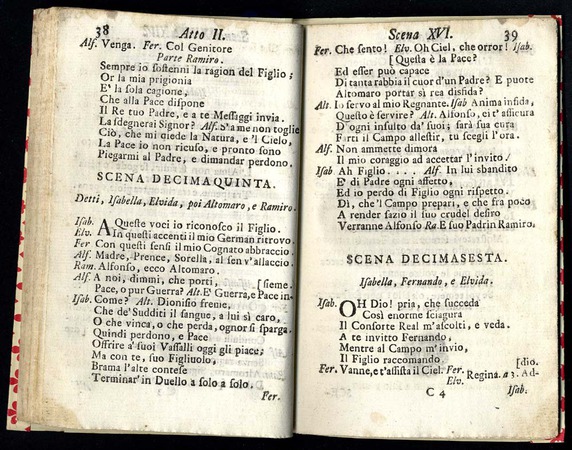 38 Atto II.
Alf. Venga. Fer. Col Genitore
Parte Ramiro.
Sempre io sostenni la ragion del Figlio;
Or la mia prigionia
E' la sola cagione,
Che alla Pace dispone
Il Re tuo Padre, e a te Messaggi invia.
La sdegnerai Signor? Alf. S'a me non toglie
Ciò, che mi diede la Natura, e 'l Cielo,
La Pace io non ricuso, e pronto sono
Piegarmi al Padre, e dimandar perdono.
SCENA DECIMAQUINTA.
Detti, Isabella, Elvida, poi Altomaro, e Ramiro.
Isab. A Queste voci io riconosco il Figlio.
Elv. In questi accenti il mio German ritrovo.
Fer Con questi sensi il mio Cognato abbraccio.
Alf. Madre, Prence, Sorella, al sen v'allaccio.
Ram. Alfonso, ecco Altomaro.
Alf. A noi, dimmi, che porti, [sieme.
Pace, o pur Guerra? Alt. E' Guerra, e Pace in-
Isab. Come? Alt. Dionisio freme,
Che de' Sudditi il sangue, a lui sì caro,
O che vinca, o che perda, ognor si sparga.
Quindi perdono, e Pace
Offrire a' suoi Vassalli oggi gli piace;
Ma con te, suo Figliuolo,
Brama l'alte contese
Terminar' in Duello a solo a solo.
Fer.
Scena XVI. 39
Fer. Che sento! Elv. Oh Ciel, che orror! Isab.
[Questa è la Pace?
Ed esser può capace
Di tanta rabbia il cuor d'un Padre? E puote
Altomaro portar sì rea disfida?
Alt. Io servo al mio Regnante. Isab Anima infida,
Questo è servire? Alt. Alfonso, ei t'assicura
D'ogni insulto da' suoi; sarà sua cura
Farti il Campo allestir, tu scegli l'ora.
Alf. Non ammette dimora
Il mio coraggio ad accettar l'invito!
Isab Ah Figlio. . . . Alf. In lui sbandito
E' di Padre ogni affetto,
Ed io perdo di Figlio ogni rispetto.
Dì, che 'l Campo prepari, e che fra poco
A render sazio il suo crudel desiro
Verranne Alfonso Ra. E suo Padrin Ramiro.
SCENA DECIMASESTA.
Isabella, Fernando, e Elvida.
Isab. OH Dio! pria, che succeda
Così enorme sciagura
Il Consorte Real m'ascolti, e veda.
A te invitto Fernando,
Mentre al Campo m'invio,
Il Figlio raccomando.
Fer. Vanne, et'assista il Ciel. Fer. [dio.
Elv. Regina. a 3. Ad-
C 4 Isab.